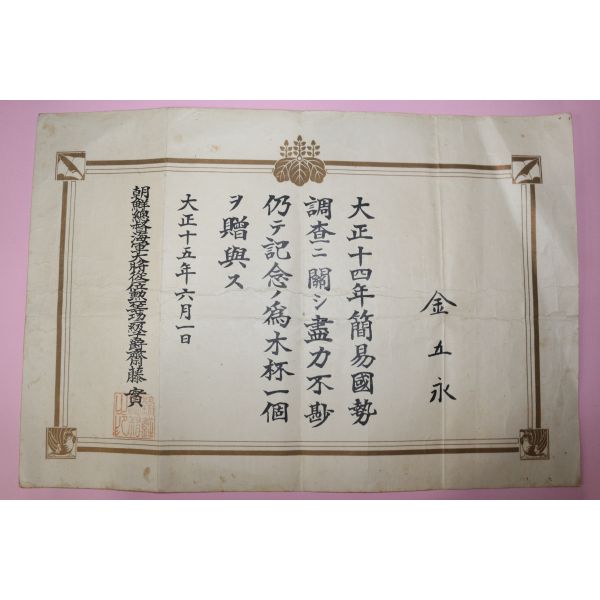 金五永
大正十四年簡易國勢
調査ニ關シ盡力不尠
仍テ記念ノ爲木杯一個
ヲ贈與ス
大正十五年六月一日
朝鮮總督海軍大將從二位勳一等功二級子爵齋藤實